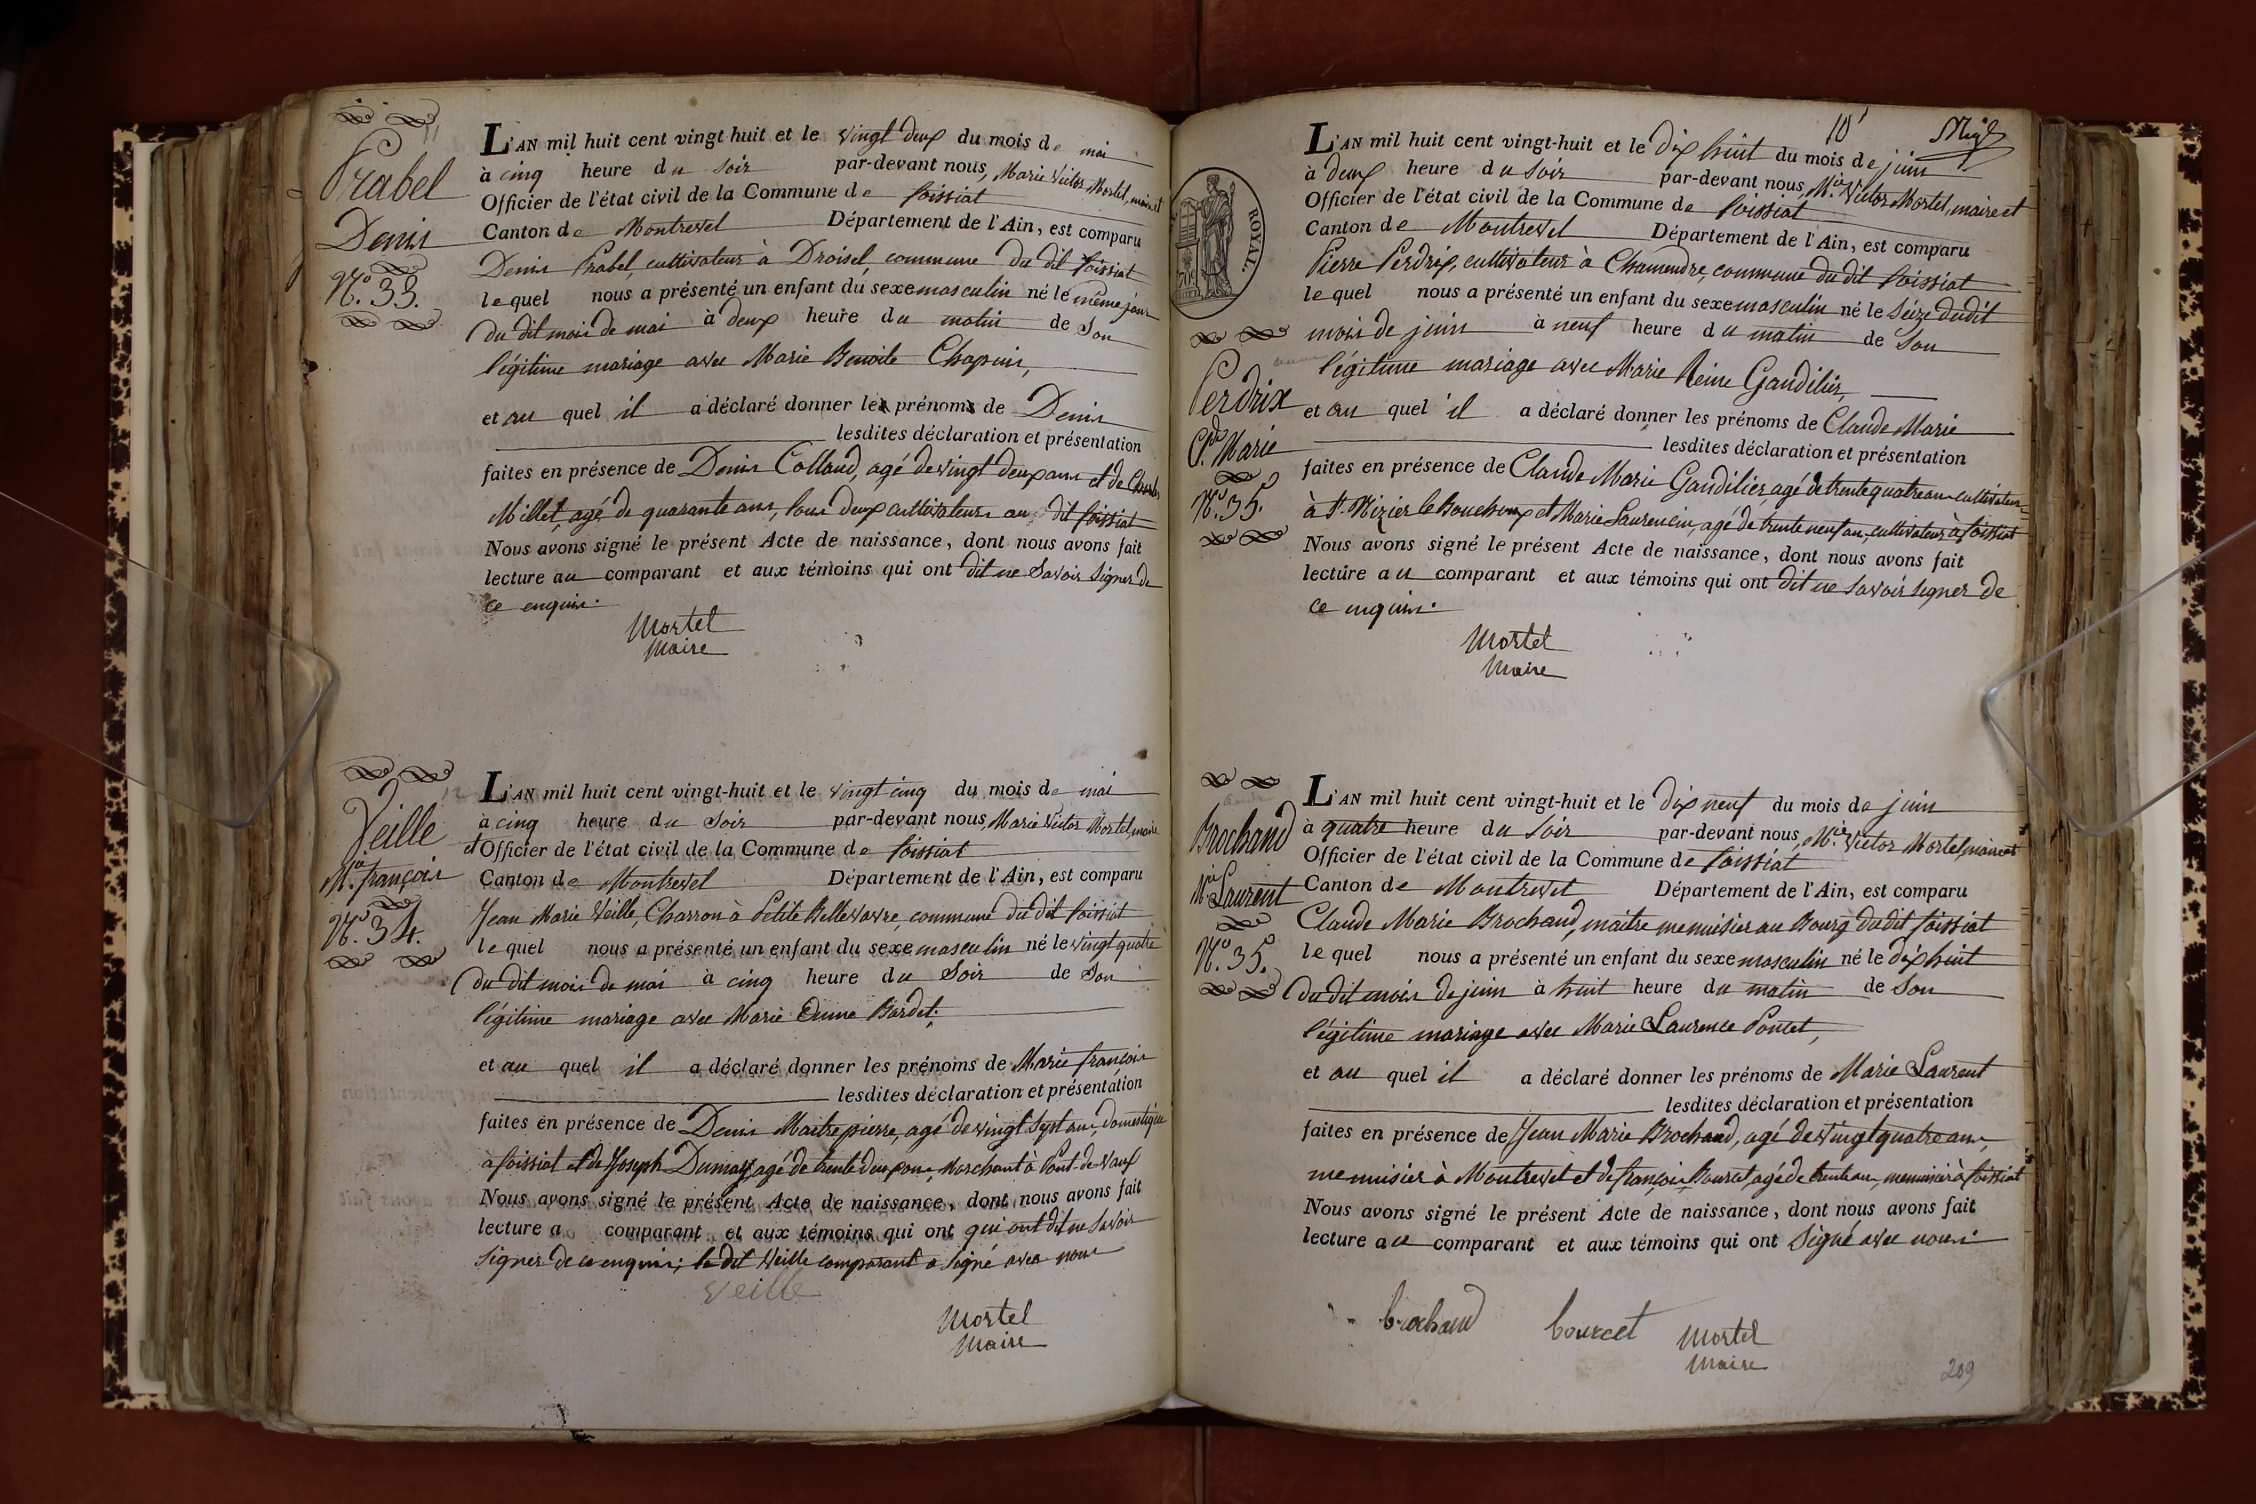 Prabel
Denis
N.º 33.
L'AN mil huit cent vingt huit et le vingt deux du mois de mai
à cinq heure du soir par-devant nous, Marie Victor Mortel, maire et
Officier de l'état civil de la Commune de foissiat
Canton de Montrevel Département de l'Ain, est comparu
Denis Prabel, cultivateur à Droisel, commune du dit foissiat
lequel nous a présenté un enfant du sexe masculin né le même jour
du dit mois de mai à deux heure du matin de Son
légitime mariage avec Marie Benoite Chapuis,
et au quel il a déclaré donner les prénoms de Denis
lesdites déclaration et présentation
faites en présence de Denis Colland, agé de vingt deux ans et de Charles
Millet, agé de quarante ans, tous deux cultivateurs au dit foissiat
Nous avons signé le présent Acte de naissance, dont nous avons fait
lecture au comparant et aux témoins qui ont dit ne Savoir Signer de
ce enquis.
Mortel
Maire
Veille
M.ie françois
N.º 34.
L'AN mil huit cent vingt-huit et le vingt cinq du mois de mai
à cinq heure du Soir par-devant nous, Marie Victor Mortel, maire
et Officier de l'état civil de la Commune de foissiat
Canton de Montrevel Département de l'Ain, est comparu
Jean Marie Veille, Charron à Petite Bellevavre, commune du dit foissiat
lequel nous a présenté un enfant du sexe masculin né le vingt quatre
du dit mois de mai à cinq heure du Soir de Son
légitime mariage avec Marie Bardet;
et au quel il a déclaré donner les prénoms de Marie françois
lesdites déclaration et présentation
faites en présence de Denis Maitrepierre, agé de vingt Sept ans, domestique
à foissiat et de Joseph Dumas, agé de trente deux ans, Marchant à Pont-de-Vaux
Nous avons signé le présent Acte de naissance, dont nous avons fait
lecture a comparant et aux témoins qui ont qui ont dit ne Savoir
Signer de ce enquis; le dit Veille comparant a Signé avec nous
veille
Mortel
Maire
10
ROYAL.
Perdrix
C.de Marie
N.º 35.
L'AN mil huit cent vingt-huit et le dix huit du mois de juin
à deux heure du Soir par-devant nous, M.ie Victor Mortel, maire et
Officier de l'état civil de la Commune de foissiat
Canton de Montrevel Département de l'Ain, est comparu
Pierre Perdrix, cultivateur à Chamendre, commune du dit foissiat
lequel nous a présenté un enfant du sexe masculin né le Seize dudit
mois de juin à neuf heure du matin de Son
légitime mariage avec Marie Reine Gandilier,
et au quel il a déclaré donner les prénoms de Claude Marie
lesdites déclaration et présentation
faites en présence de Claude Marie Gandilier agé de trente quatre ans cultivateur
à S.t Nizier le Bouchoux et Marie Laurencin, agé de trente neuf ans, cultivateur à foissiat
Nous avons signé le présent Acte de naissance, dont nous avons fait
lecture au comparant et aux témoins qui ont dit ne Savoir signer de
ce enquis.
Mortel
Maire
Brochand
M.ie Laurent
N.º 35.
L'AN mil huit cent vingt-huit et le dix neuf du mois de juin
à quatre heure du Soir par-devant nous, M.ie Victor Mortel, maire et
Officier de l'état civil de la Commune de foissiat
Canton de Montrevel Département de l'Ain, est comparu
Claude Marie Brochand, maitre menuisier au Bourg du dit foissiat
lequel nous a présenté un enfant du sexe masculin né le dix huit
du dit mois de juin à huit heure du matin de Son
légitime mariage avec Marie Laurence Poncet,
et au quel il a déclaré donner les prénoms de Marie Laurent
lesdites déclaration et présentation
faites en présence de Jean Marie Brochand, agé de vingt quatre ans,
menuisier à Montrevel et de françois Bourcet, agé de trente ans, menuisier à foissiat
Nous avons signé le présent Acte de naissance, dont nous avons fait
lecture au comparant et aux témoins qui ont Signé avec nous.
brochand bourcet Mortel
Maire
209